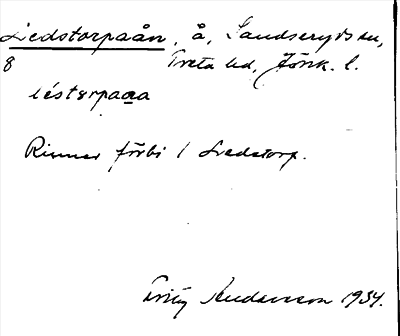 Liedstorpaån, å, Sandseryds sn,
8 Tveta hd, Jönk. l.
léstorpaaa
Rinner förbi 1 Liedstorp.
Andersson 1934.